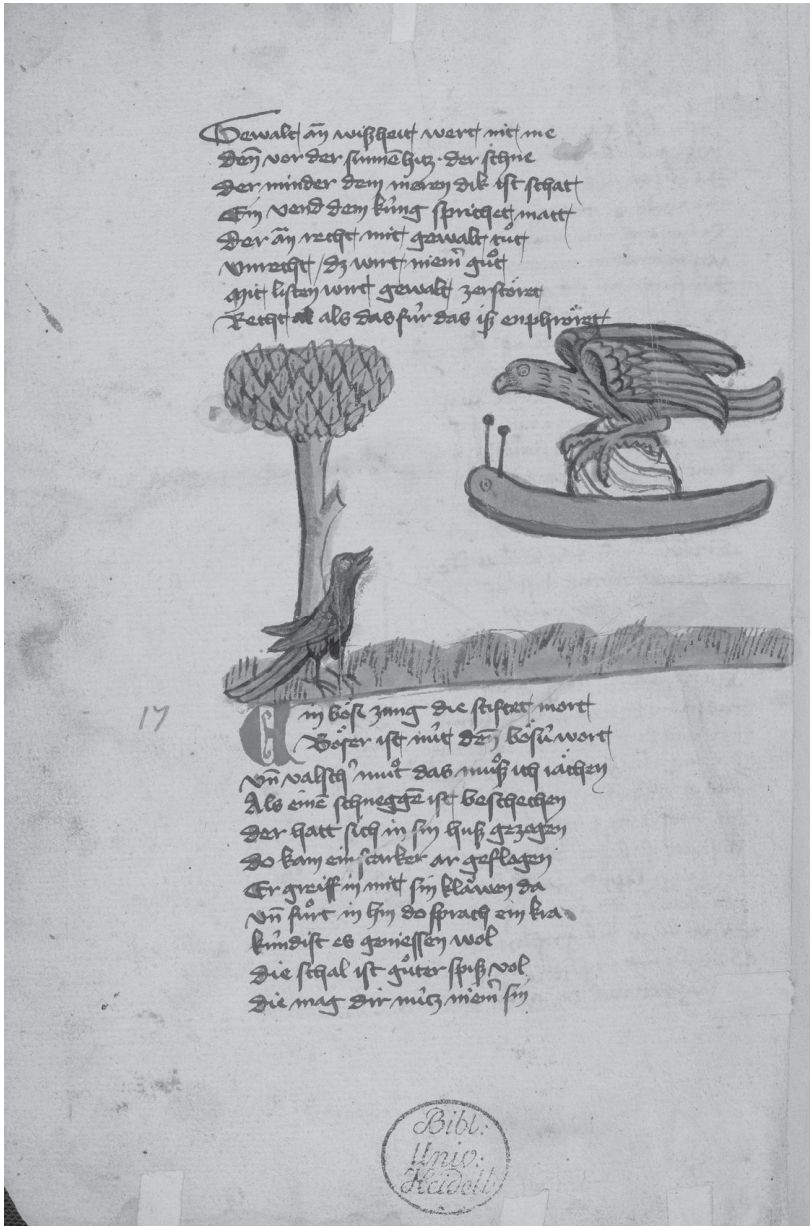 Gewalt an̄ wiſzheit wert nit me
den̄ vor der sunnē hitz · der schne
Der minder dem meren dik ist schat
Ein vend dem kúng sprichet matt
Der an̄ recht mit gewalt tůt
vnrecht / dz wirt niem̄ gůt
Mit listen wirt gewalt zerstöret
Recht als das fúr das iſz enphröret
Ein bösi zung die stiftet mort
Böser ist nút den̄ bösú wort
vn̄ valsch můt das můſz ich iächen
Als einē schneggē ist beschechen
der hatt sich in sin huſz gezogen
do kam ein starker ar geflogen
Er greiff in mit sin kläwen da
vn̄ fůrt in hin do sprach ein kra
kundist es geniessen wol
die schal ist gůter spiſz vol
die mag dir nútz niem̄ sin
17
Bibl:
Univ:
Heidelb